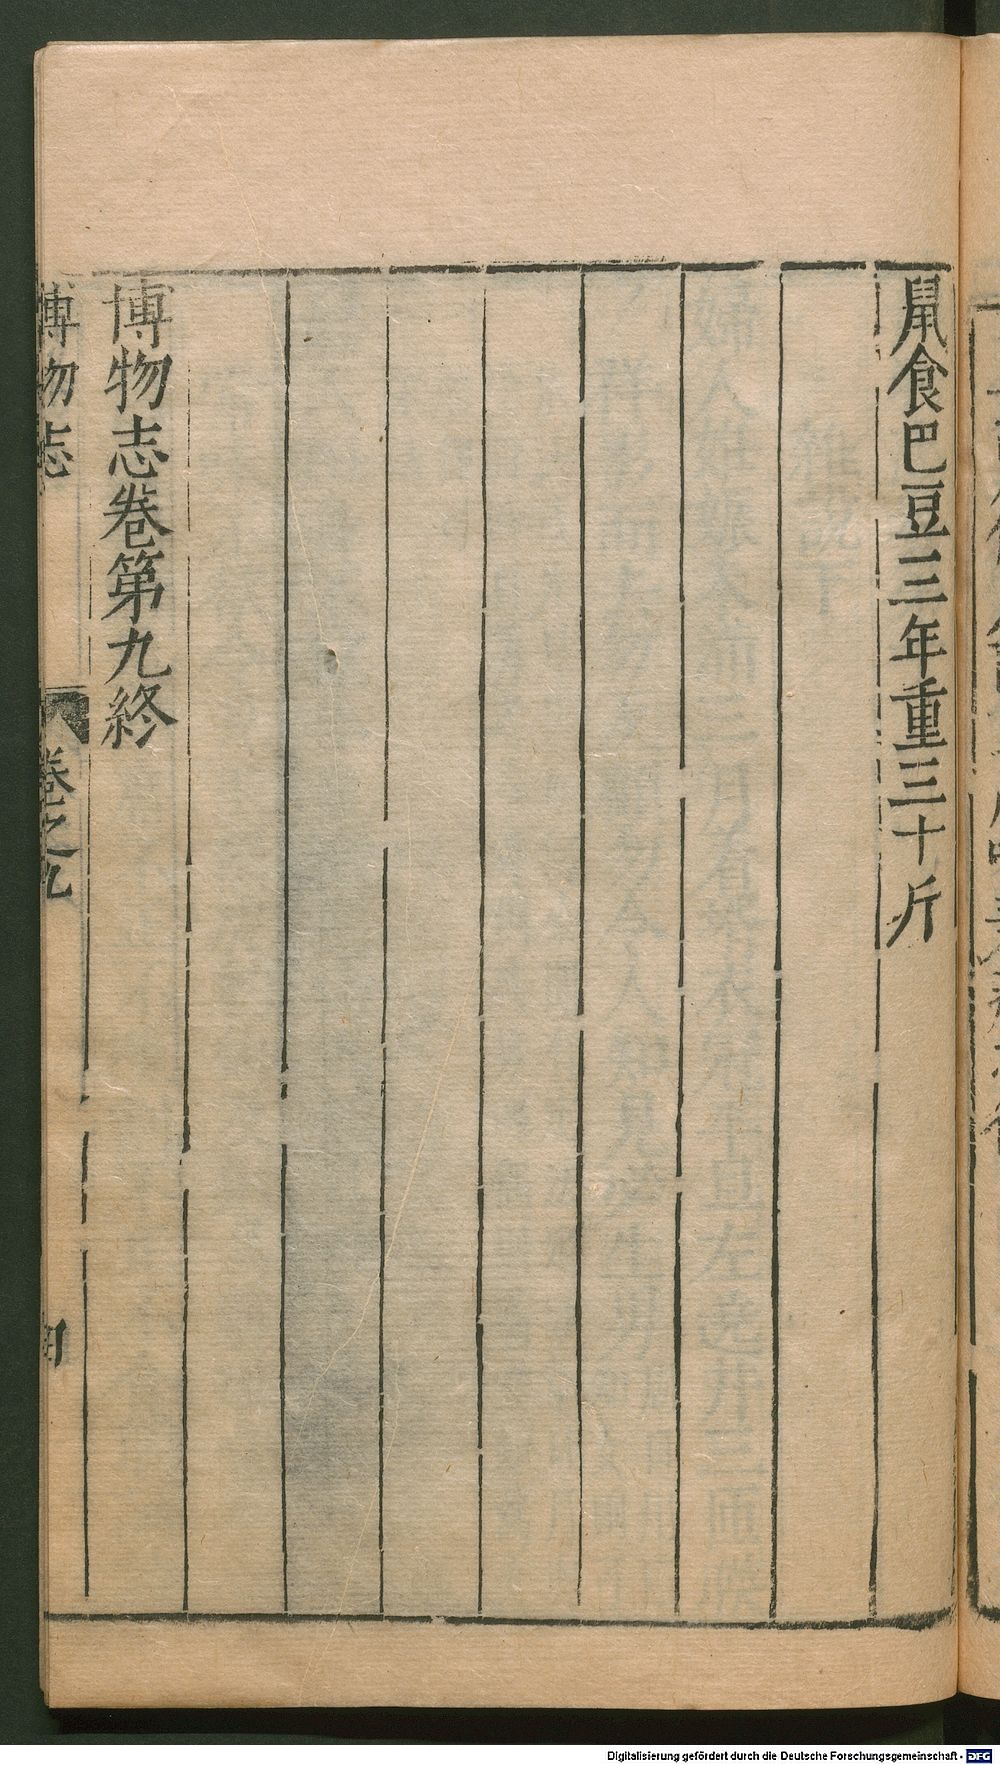 鼠食巴豆三年重三十斤
博物志卷第九終
博物志
卷之九
Digitalisierung gefördert durch die Deutsche Forschungsgemeinschaft - DFG